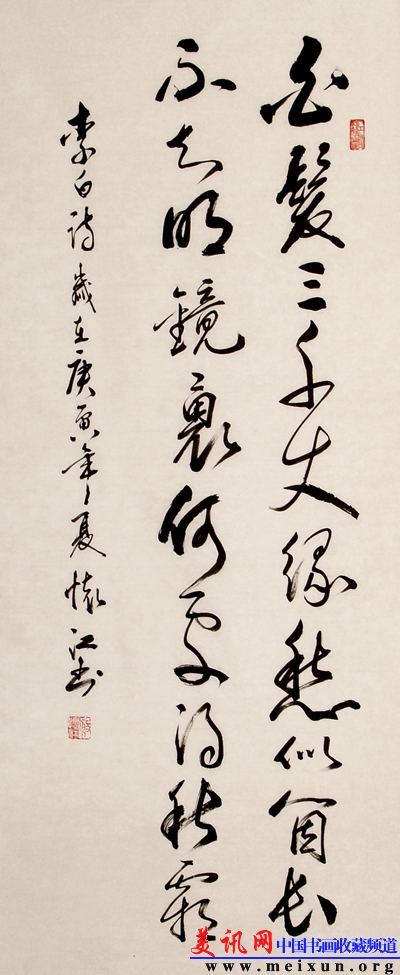 白髮三千丈緣愁似個長
不知明鏡裏何處得秋霜
李白詩歲在庚寅年之夏懷江書
美讯网 中国书画收藏频道
www.meixun.org